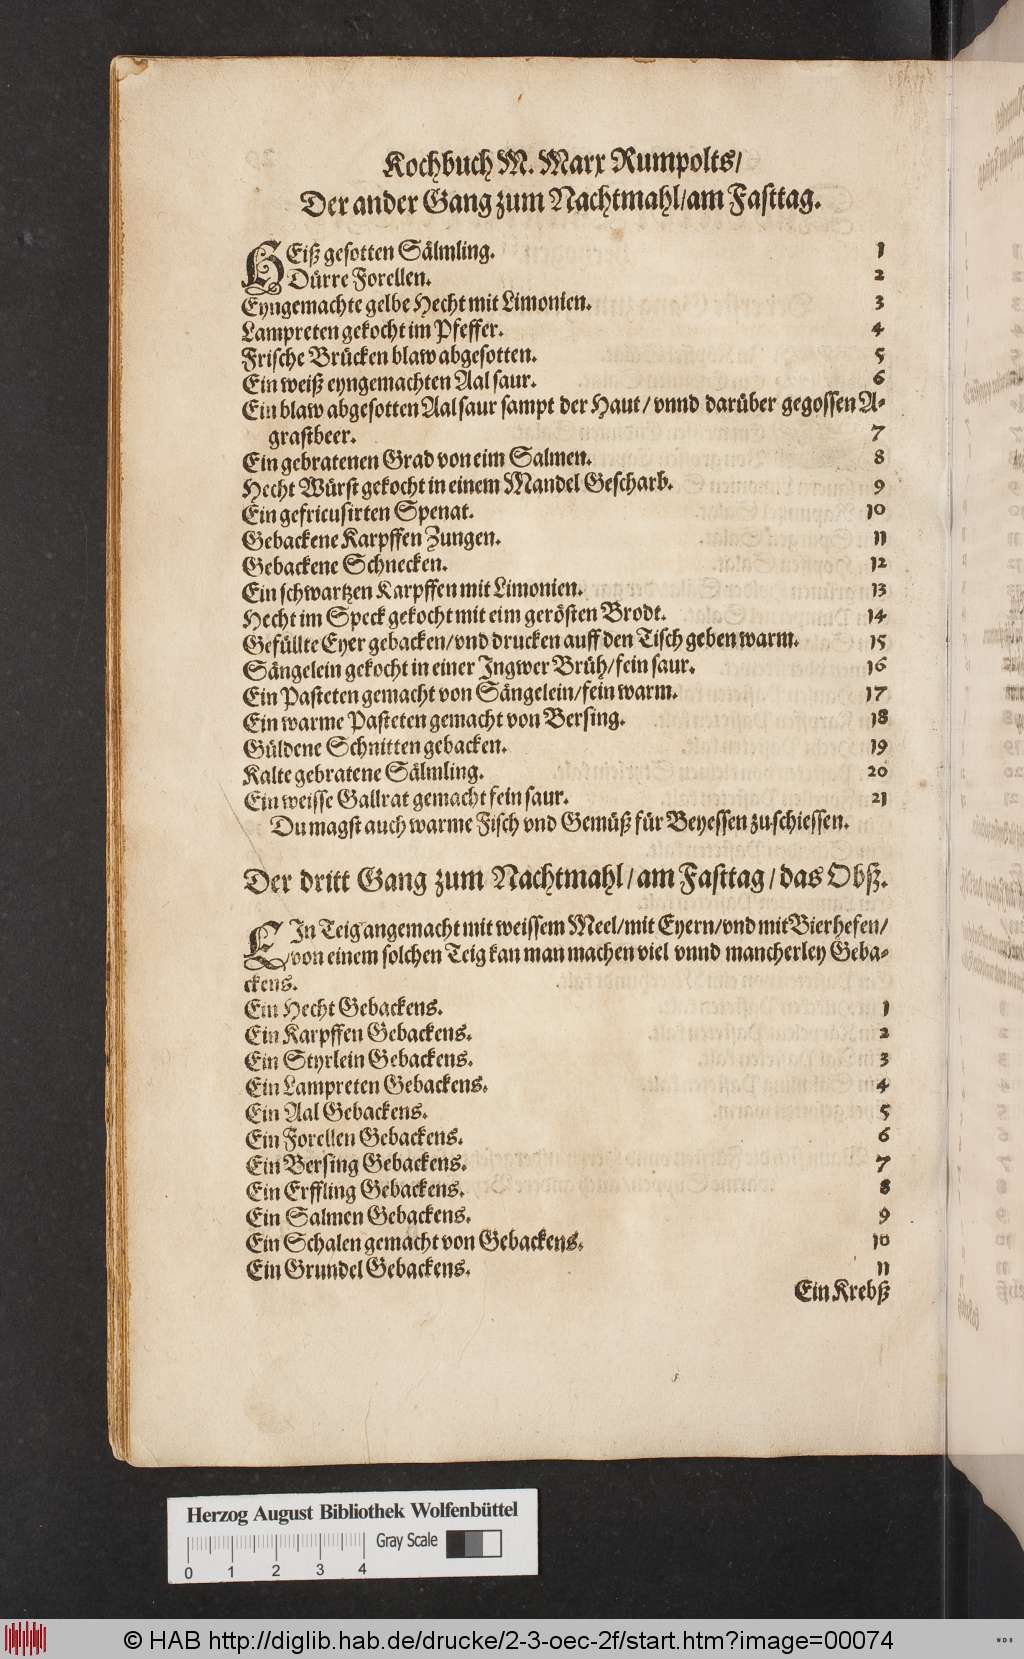 Kochbuch M. Marx Rumpolts/
Der ander Gang zum Nachtmahl/am Fasttag.
HEiß gesotten Sälmling. 1
Dürre Forellen. 2
Eyngemachte gelbe Hecht mit Limonien. 3
Lampreten gekocht im Pfeffer. 4
Frische Brücken blaw abgesotten. 5
Ein weiß eyngemachten Aal saur. 6
Ein blaw abgesotten Aal saur sampt der Haut/ vnnd darüber gegossen A-
grastbeer. 7
Ein gebratenen Grad von eim Salmen. 8
Hecht Würst gekocht in einem Mandel Gescharb. 9
Ein gefricusirten Spenat. 10
Gebackene Karpffen Zungen. 11
Gebackene Schnecken. 12
Ein schwartzen Karpffen mit Limonien. 13
Hecht im Speck gekocht mit eim gerösten Brodt. 14
Gefüllte Eyer gebacken/vnd drucken auff den Tisch geben warm. 15
Sängelein gekocht in einer Ingwer Brüh/fein saur. 16
Ein Pasteten gemacht von Sängelein/fein warm. 17
Ein warme Pasteten gemacht von Bersing. 18
Güldene Schnitten gebacken. 19
Kalte gebratene Sälmling. 20
Ein weisse Gallrat gemacht fein saur. 21
Du magst auch warme Fisch vnd Gemüß für Beyessen zuschiessen.
Der dritt Gang zum Nachtmahl/am Fasttag/das Obß.
EIn Teig angemacht mit weissem Meel/mit Eyern/vnd mit Bierhefen/
/von einem solchen Teig kan man machen viel vnnd mancherley Geba-
ckens.
Ein Hecht Gebackens. 1
Ein Karpffen Gebackens. 2
Ein Styrlein Gebackens. 3
Ein Lampreten Gebackens. 4
Ein Aal Gebackens. 5
Ein Forellen Gebackens. 6
Ein Bersing Gebackens. 7
Ein Erffling Gebackens. 8
Ein Salmen Gebackens. 9
Ein Schalen gemacht von Gebackens. 10
Ein Grundel Gebackens. 11
Ein Krebß
Herzog August Bibliothek Wolfenbüttel
Gray Scale
0 1 2 3 4
© HAB http://diglib.hab.de/drucke/2-3-oec-2f/start.htm?image=00074